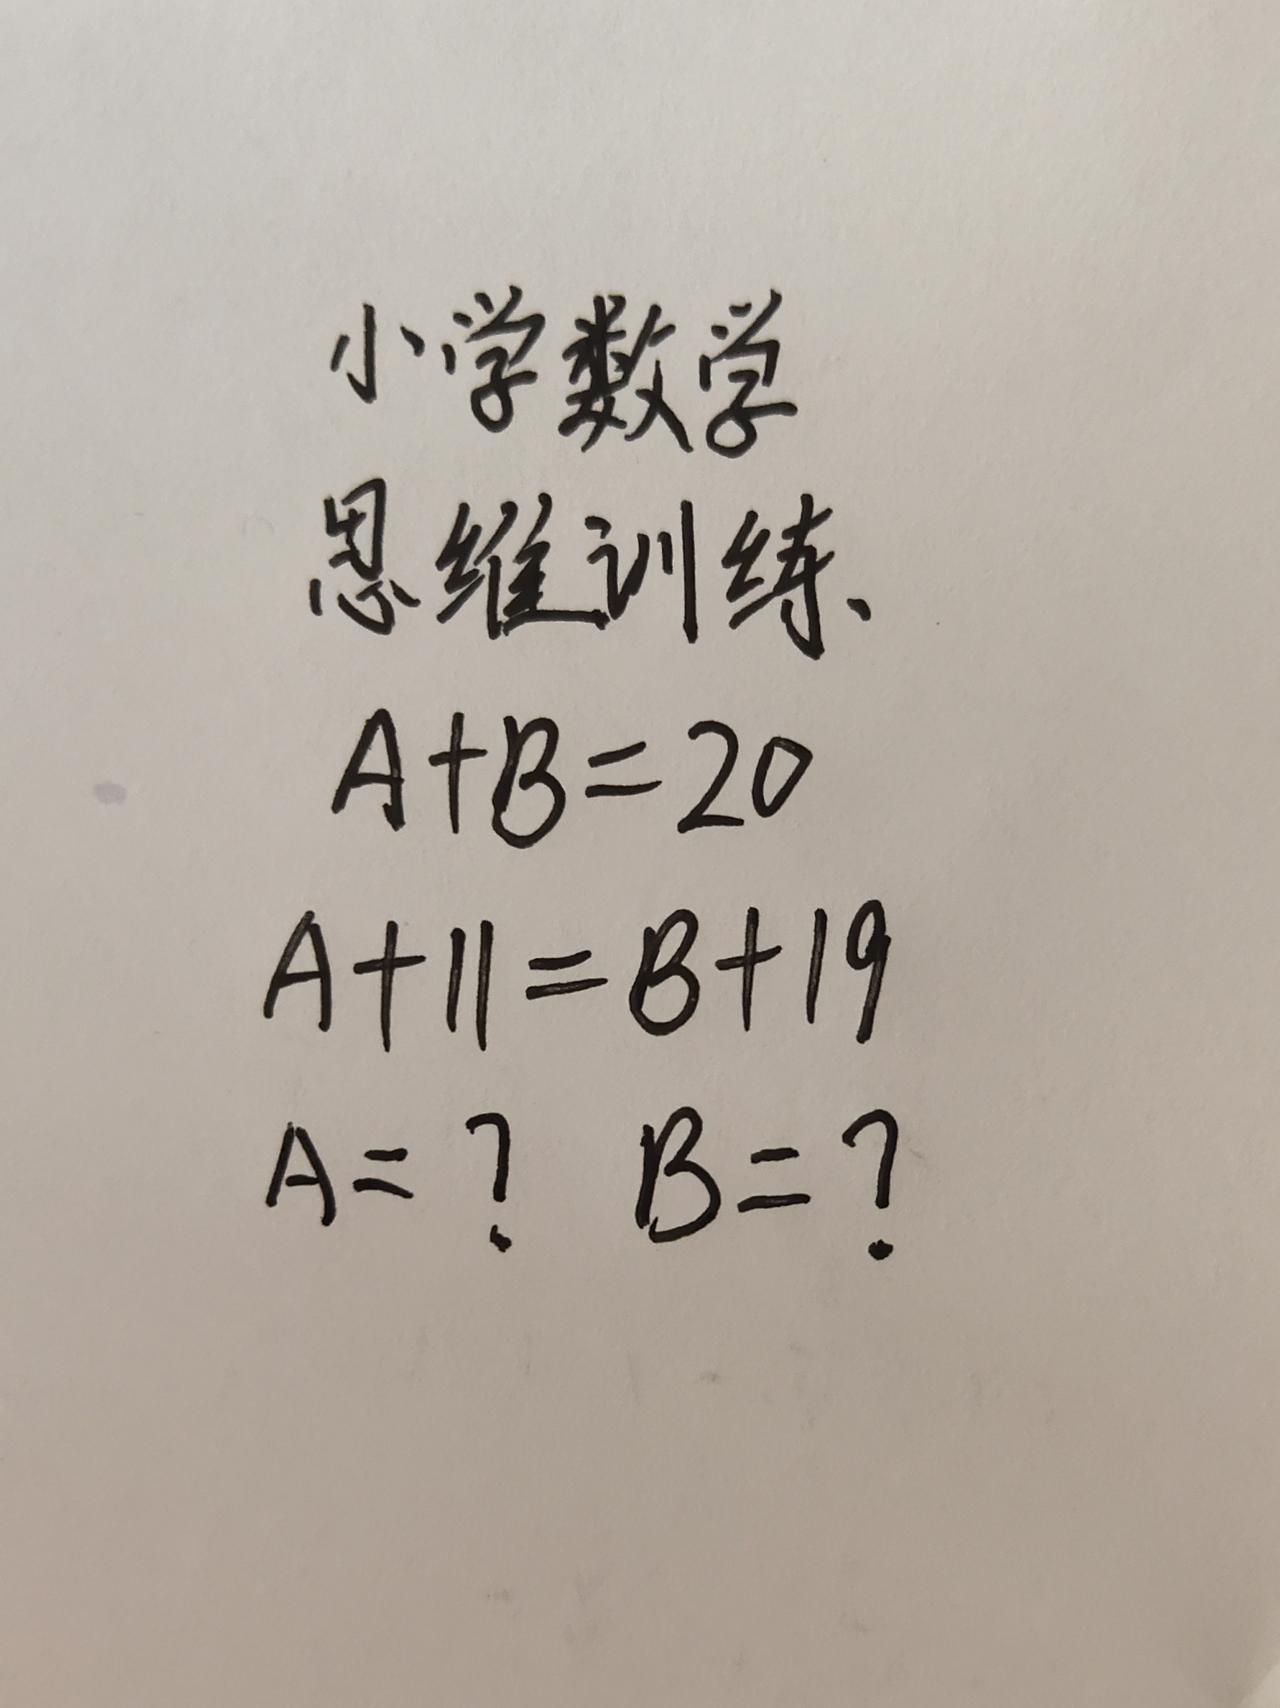 小学数学
思维训练、
A+B=20
A+11=B+19
A=? B=?